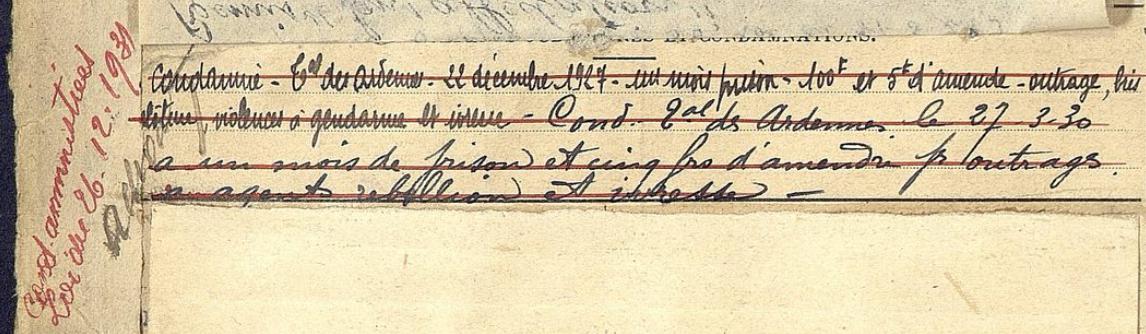 Cond. amnistiées
Loi du 26.12.1931
ET CONDAMNATIONS.
Condamné - Tal des Ardennes - 22 décembre 1927 - un mois prison - 100f et 5f d'amende - outrage,
violences à gendarme et ivresse - Cond. Tal des Ardennes le 27.3.30
a un mois de prison et cinq frs d'amende pr outrages
a agents rebellion et ivresse -